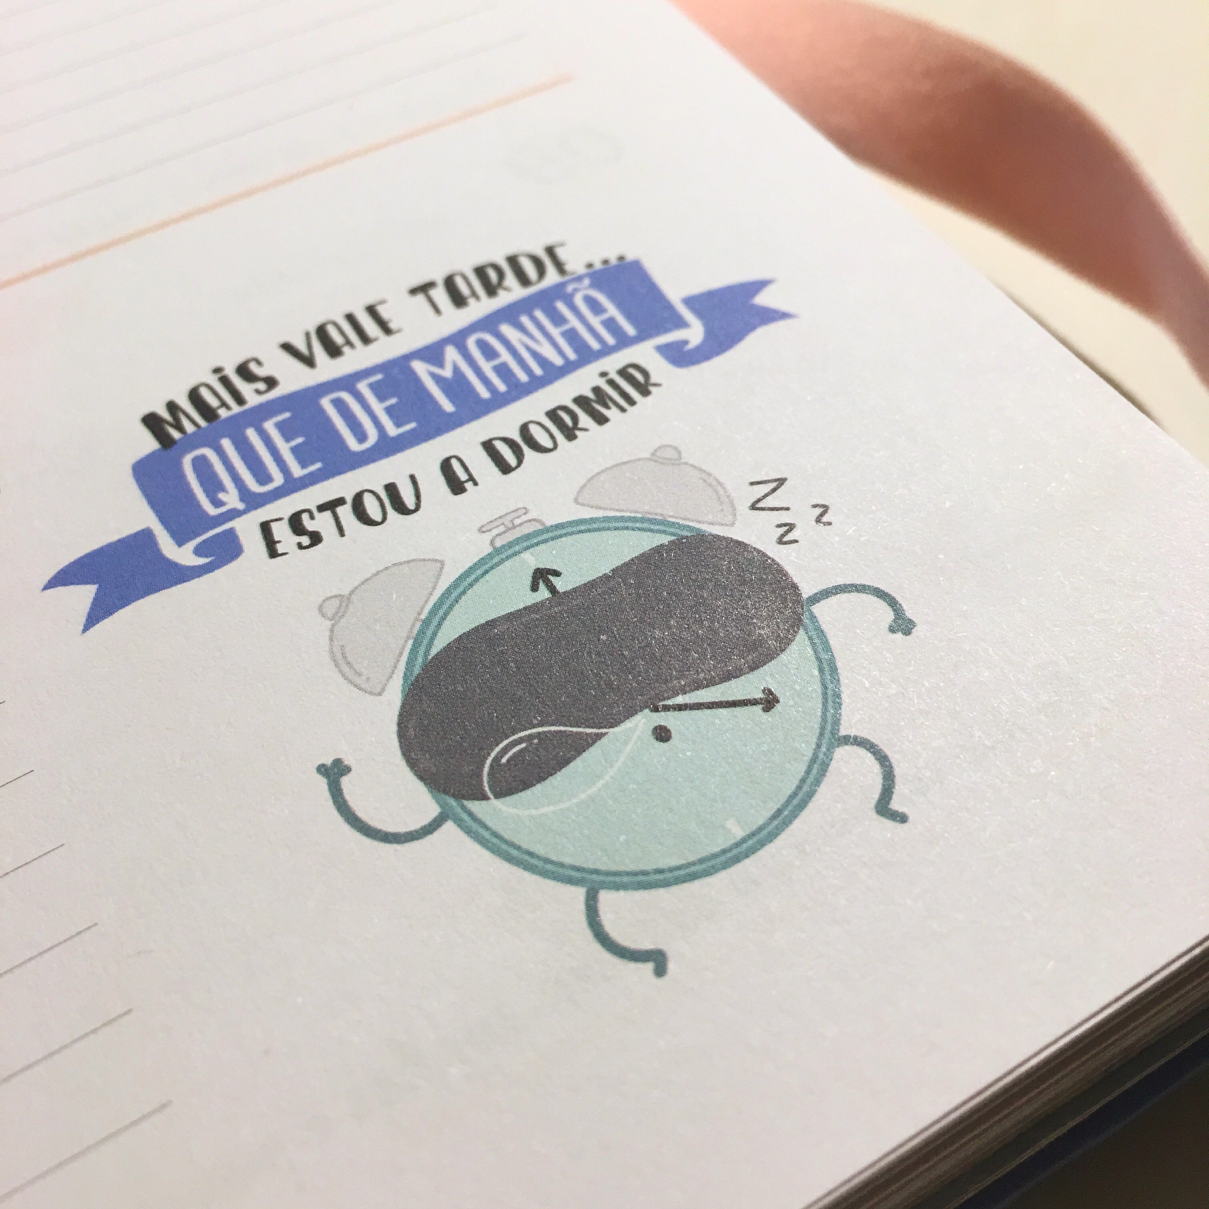 MAIS VALE TARDE...
QUE DE MANHÃ
ESTOU A DORMIR
Z
z z